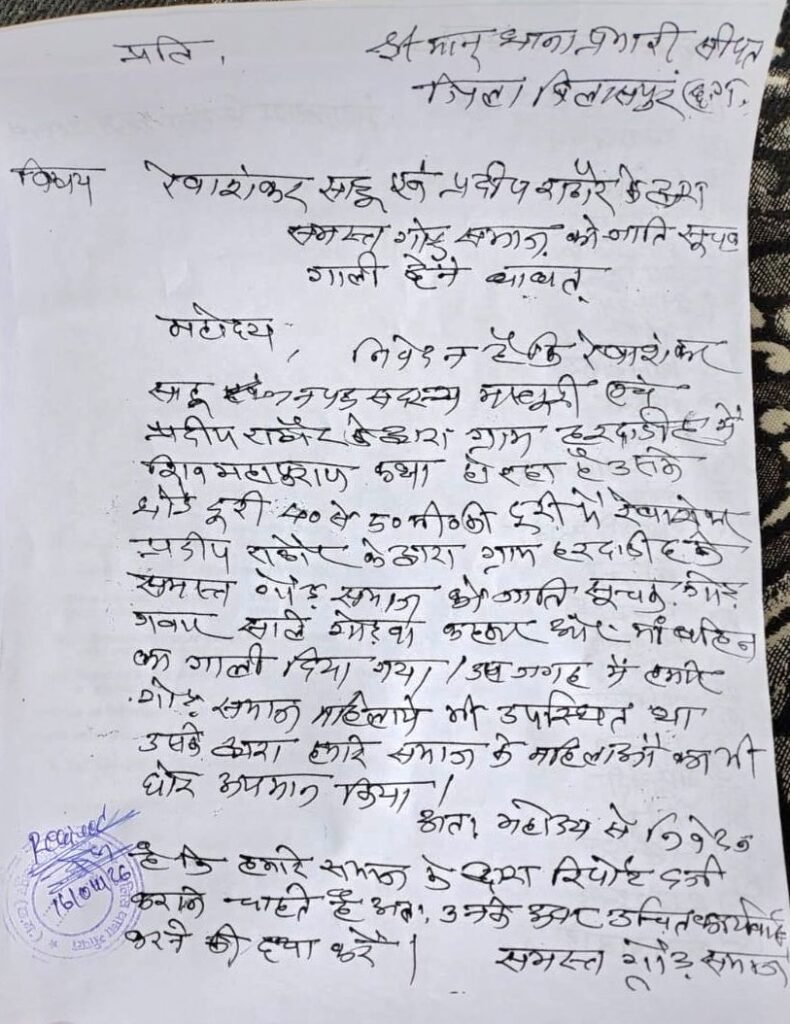 प्रति,
श्रीमान् थाना प्रभारी सीपत
जिला बिलासपुर (छ.ग.
विषय रेवाशंकर साहू एवं प्रदीप राठौर के द्वारा
समस्त गोंड़ समाज को जाति सूचक
गाली देने बाबत्
महोदय,
निवेदन है कि रेवाशंकर
साहू जनपद सदस्य मस्तूरी एवं
प्रदीप राठौर के द्वारा ग्राम हरदाडीह में
शिव महापुराण कथा हो रहा है उसके
थोड़े दूरी 40 से 50 मी० की दूरी में रेवाशंकर
प्रदीप राठौर के द्वारा ग्राम हरदाडीह के
समस्त गोंड़ समाज को जाति सूचक गोंड़
गवार साले गोड़वा कहकर और माँ बहिन
का गाली दिया गया। उस जगह में हमारे
गोंड़ समाज महिलायें भी उपस्थित था
उसके द्वारा हमारे समाज के महिलाओं का भी
घोर अपमान किया।
अतः महोदय से निवेदन
है कि हमारे समाज के द्वारा रिपोर्ट दर्ज
कराने चाहते है अतः उनके ऊपर उचित कार्यवाही
करने की दया करें।
समस्त गोंड़ समाज
Received
16/01/26